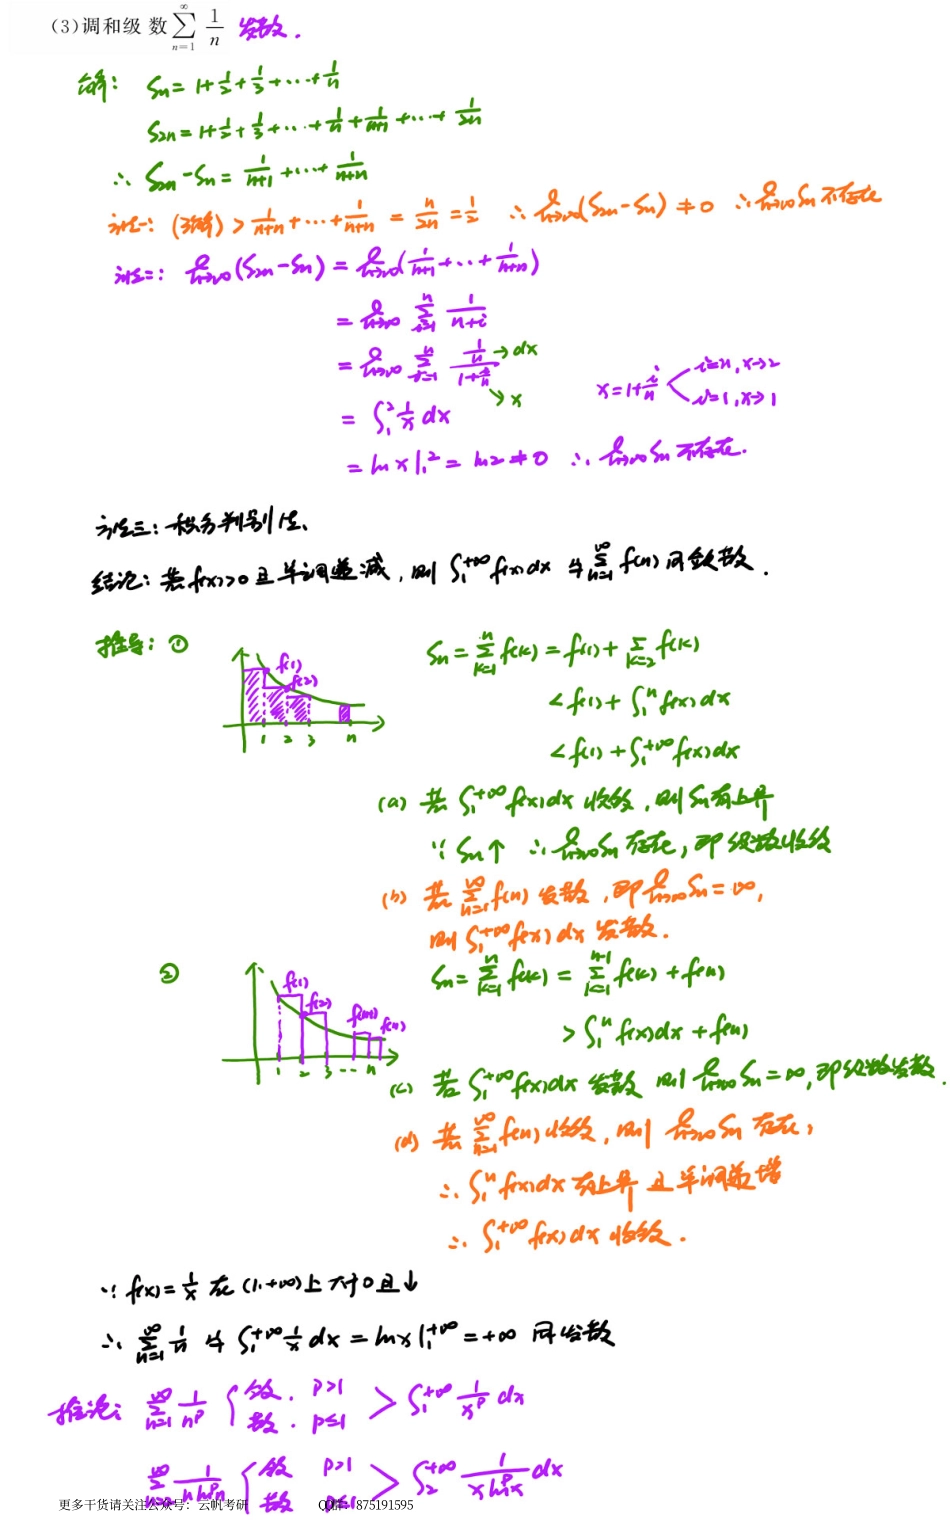 (3)调和级数 ∑_{n=1}^{∞} 1/n 发散.
解: Sn = 1+1/2+1/3+···+1/n
S2n = 1+1/2+1/3+···+1/n+1/(n+1)+···+1/2n
∴ S2n-Sn = 1/(n+1)+···+1/(n+n)
法一: (缩) > 1/(n+n)+···+1/(n+n) = n/2n = 1/2 ∴ lim_{n→∞}(S2n-Sn) ≠ 0 ∴ lim_{n→∞} Sn 不存在
法二: lim_{n→∞}(S2n-Sn) = lim_{n→∞}(1/(n+1)+···+1/(n+n))
= lim_{n→∞} ∑_{i=1}^{n} 1/(n+i)
= lim_{n→∞} ∑_{i=1}^{n} (1/n)/(1+i/n) → dx
→ x
x=1+i/n < i=n, x→2
i=1, x→1
= ∫_1^2 1/x dx
= ln x|_1^2 = ln2 ≠ 0 ∴ lim_{n→∞} Sn 不存在.
法三: 积分判别法
结论: 若f(x)>0且单调递减, 则 ∫_1^{+∞} f(x)dx 与 ∑_{n=1}^{∞} f(n) 同敛散.
推导: ①
f(1)
f(2)
1 2 3 n
Sn = ∑_{k=1}^{n} f(k) = f(1)+∑_{k=2}^{n} f(k)
< f(1)+∫_1^n f(x)dx
< f(1)+∫_1^{+∞} f(x)dx
(a) 若 ∫_1^{+∞} f(x)dx 收敛, 则Sn有上界
∵ Sn↑ ∴ lim_{n→∞} Sn 存在, 即级数收敛
(b) 若 ∑_{n=1}^{∞} f(n) 发散, 即 lim_{n→∞} Sn = ∞,
则 ∫_1^{+∞} f(x)dx 发散.
②
f(1)
f(2)
f(n-1)
f(n)
1 2 3 ··· n
Sn = ∑_{k=1}^{n} f(k) = ∑_{k=1}^{n-1} f(k)+f(n)
> ∫_1^n f(x)dx + f(n)
(c) 若 ∫_1^{+∞} f(x)dx 发散 则 lim_{n→∞} Sn = ∞, 即级数发散.
(d) 若 ∑_{n=1}^{∞} f(n) 收敛, 则 lim_{n→∞} Sn 存在,
∴ ∫_1^n f(x)dx 有上界 且单调递增
∴ ∫_1^{+∞} f(x)dx 收敛.
∵ f(x)=1/x 在 (1,+∞)上大于0且↓
∴ ∑_{n=1}^{∞} 1/n 与 ∫_1^{+∞} 1/x dx = ln x|_1^{+∞} = +∞ 同发散
推论: ∑_{n=1}^{∞} 1/n^p { 敛. p>1
散. p≤1 > ∫_1^{+∞} 1/x^p dx
∑_{n=2}^{∞} 1/(n ln^p n) { 敛 p>1
散 p≤1 > ∫_2^{+∞} 1/(x ln^p x) dx
更多干货请关注公众号：云帆考研 QQ群：875191595